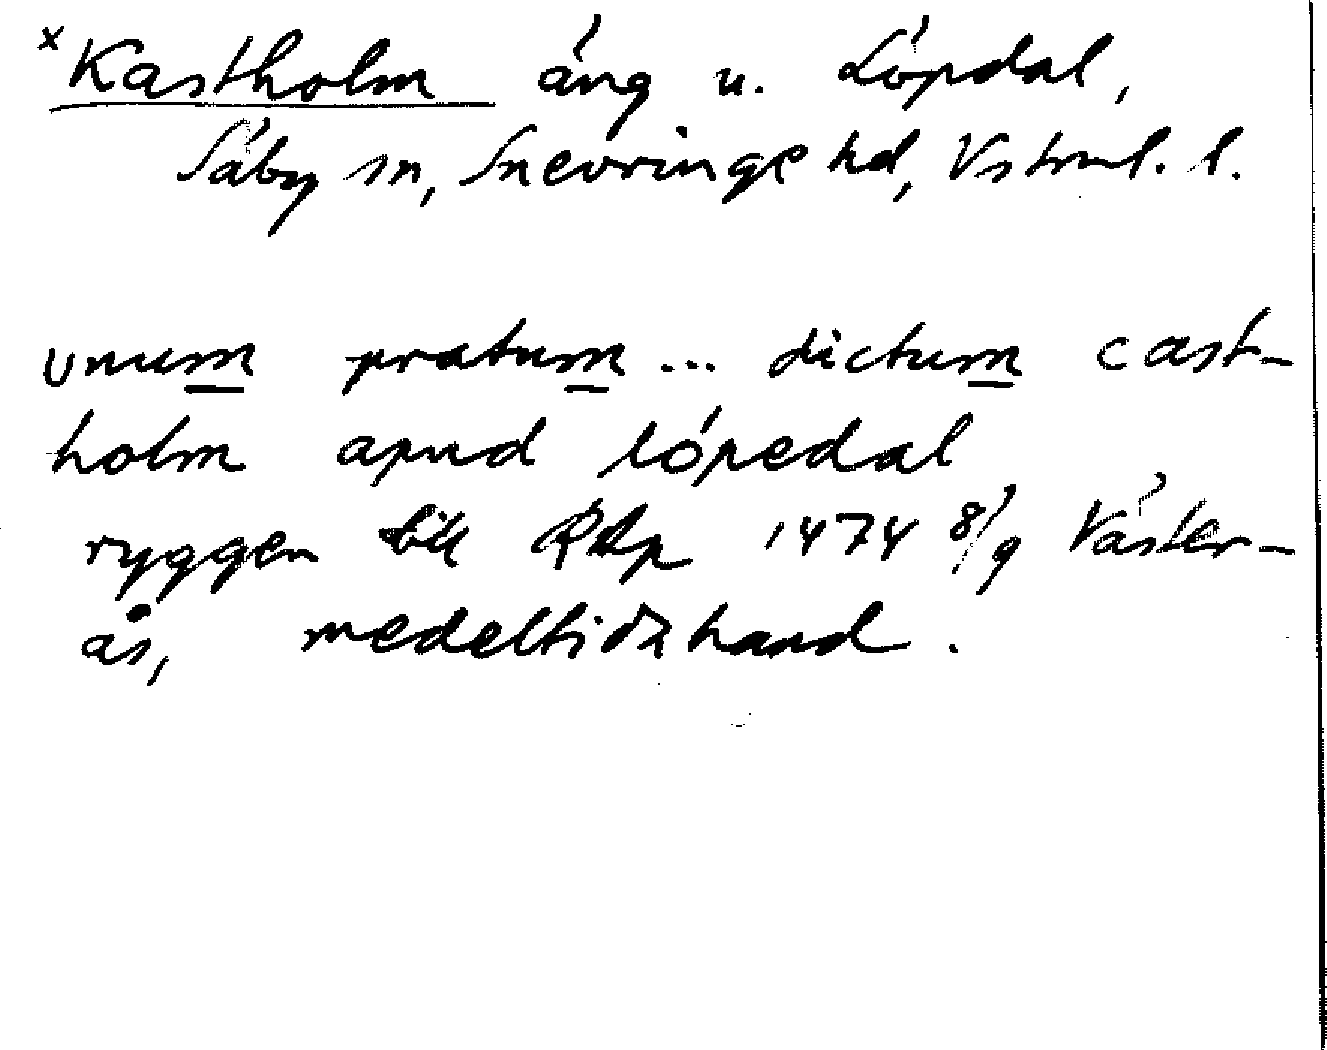 x Kastholm äng u. Löpdal,
Säby sn, Snevringe hd, Vstml. l.
unum pratum ... dictum cast-
holm apud löpedal
ryggen till RAp 1474 8/9 Väster-
ås, medeltidshand.